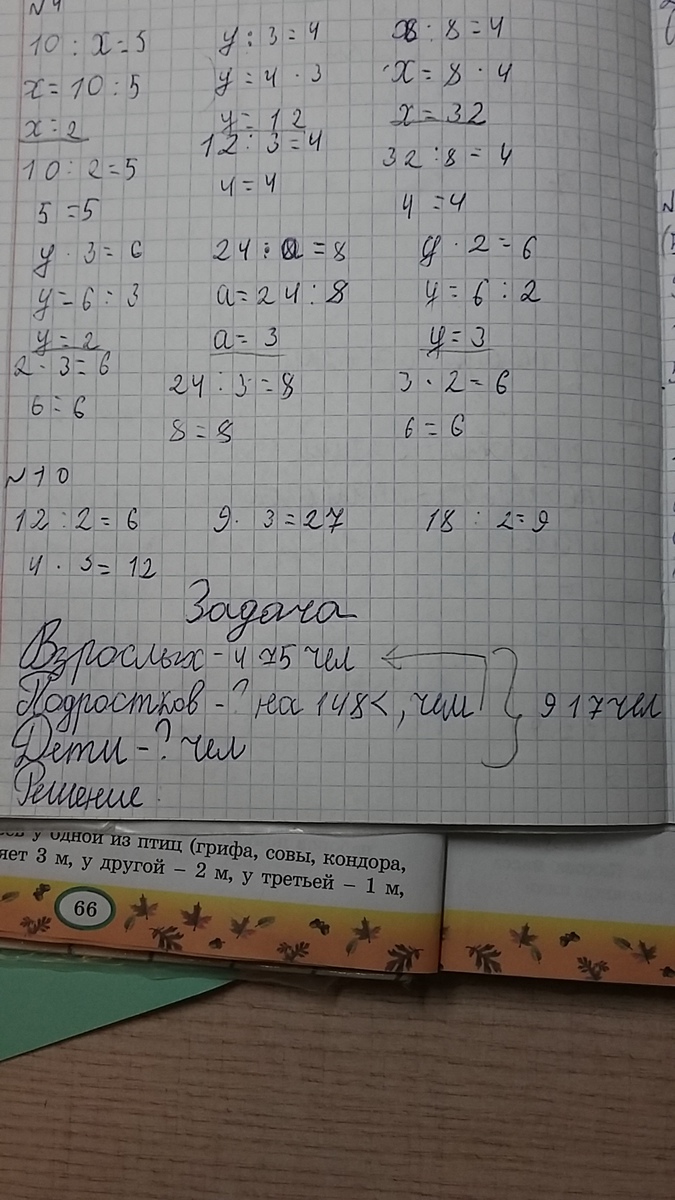 N4
10 : x = 5 y : 3 = 4 x : 8 = 4
x = 10 : 5 y = 4 · 3 x = 8 · 4
x = 2 y = 12 x = 32
10 : 2 = 5 12 : 3 = 4 32 : 8 = 4
5 = 5 4 = 4 4 = 4
y · 3 = 6 24 : a = 8 y · 2 = 6
y = 6 : 3 a = 24 : 8 y = 6 : 2
y = 2 a = 3 y = 3
2 · 3 = 6 24 : 3 = 8 3 · 2 = 6
6 = 6 8 = 8 6 = 6
N10
12 : 2 = 6 9 · 3 = 27 18 : 2 = 9
4 · 3 = 12
Задача
Взрослых - 475 чел
Подростков - ? на 148 <, чем 917 чел
Дети - ? чел
Решение
у одной из птиц (грифа, совы, кондора,
3 м, у другой – 2 м, у третьей – 1 м,
66